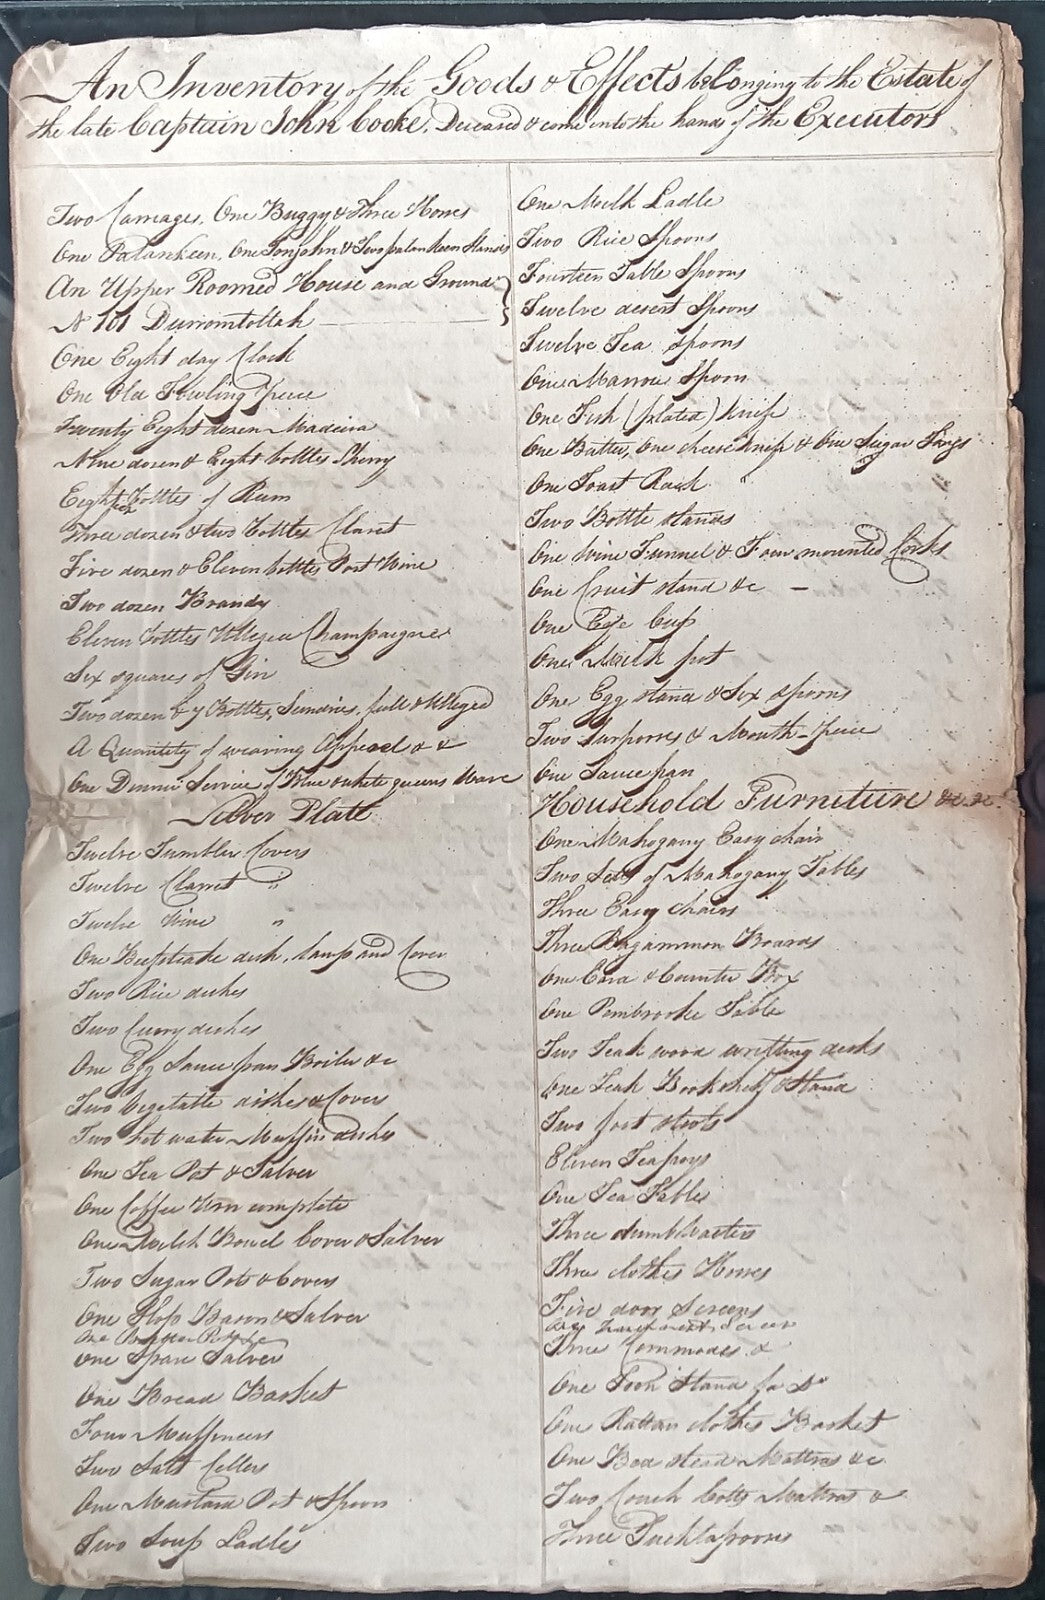 An Inventory of the Goods & Effects belonging to the Estate of
the late Captain John Cooke, Deceased & come into the hands of the Executors
Two Carriages, One Buggy & Three Horses
One Palankeen, One Tonjohn & Two palankeen Stands
An Upper Roomed House and Ground
No 101 Durromtollah
One Eight day Clock
One Old Fowling Piece
Twenty Eight dozen Madeira
Nine dozen & Eight bottles Sherry
Eight bottles of Rum
Three dozen & two bottles Claret
Five dozen & Eleven bottles Port Wine
Two dozen Brandy
Eleven bottles Ulleged Champaigne
Six squares of Gin
Two dozen & 7 Bottles, Sundries, full & Ulleged
A Quantity of wearing Apperel & &
One Dinner Service of Blue white queens Ware
Silver Plate
Twelve Tumbler Covers
Twelve Claret "
Twelve Wine "
One Beefsteake dish, lamp and Cover
Two Rice dishes
Two Curry dishes
One Egg Sauce pan Boiler &c
Two Vegetable dishes & Covers
Two hot water Muffin dishes
One Tea Pot & Salver
One Coffee Urn complete
One Milk Bowl Cover & Salver
Two Sugar Pots & Covers
One Slop Bason & Salver
One Butter Pot &c
One Spare Salver
One Bread Basket
Four Muffineers
Two Salt Cellers
One Mustard Pot & Spoon
Two Soup Ladles
One Milk Ladle
Two Rice Spoons
Fourteen Table Spoons
Twelve desert Spoons
Twelve Tea Spoons
One Marrow Spoon
One Fish (plated) knife
One Butter, One cheese knife & One Sugar Tongs
One Toast Rack "
Two Bottle stands
One Wine Funnel & Four mounted Corks
One Cruit stand &c
One Eye Cup
One Milk pot
One Egg stand & Six spoons
Two Surposses & Mouth-piece
One Saucepan
Household Furniture &c. &c.
One Mahogany Easy chair
Two Setts of Mahogany Tables
Three Easy chairs
Three Bagammon Boards
One Card & Counter Box
One Pembrooke Table
Two Teak wood writting desks
One Teak Bookshelf & Stand
Two foot stools
Eleven Teapoys
One Tea Tables
Three dumb Waiters
Three clothes Horses
Five door Screens
One Screen
Three Commodes &
One Stand for Do
One Rattan clothes Basket
One Bed stead Mattras &c
Two Couch Cotts Mattras &
Three Tucktaposses